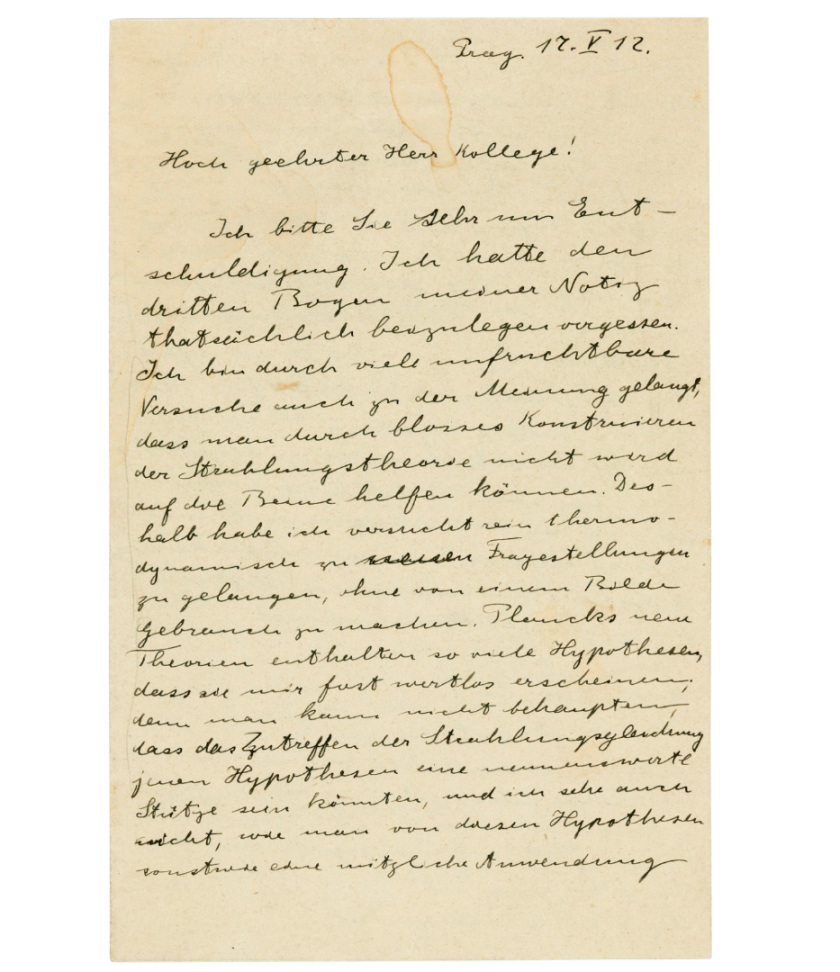 Prag. 17. V 12.
Hoch geehrter Herr Kollege!
Ich bitte Sie sehr um Ent-
schuldigung. Ich hatte den
dritten Bogen meiner Notiz
thatsächlich beizulegen vergessen.
Ich bin durch viele unfruchtbare
Versuche auch zu der Meinung gelangt,
dass man durch blosses Konstruieren
der Strahlungstheorie nicht wird
auf die Beine helfen können. Des-
halb habe ich versucht rein thermo-
dynamisch zu neuen Fragestellungen
zu gelangen, ohne von einem Bilde
Gebrauch zu machen. Plancks neue
Theorien enthalten so viele Hypothesen,
dass sie mir fast wertlos erscheinen;
denn man kann nicht behaupten,
dass das Zutreffen der Strahlungsgleichung
jenen Hypothesen eine nennenswerte
Stütze sein könnten, und ich sehe auch
nicht, wie man von diesen Hypothesen
sonstwie eine nützliche Anwendung